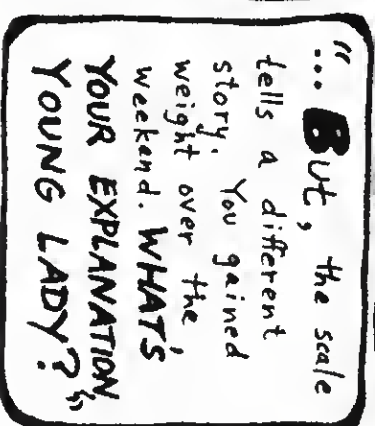 "... But, the scale
tells a different
story. You gained
weight over the
weekend. WHAT'S
YOUR EXPLANATION
YOUNG LADY?"